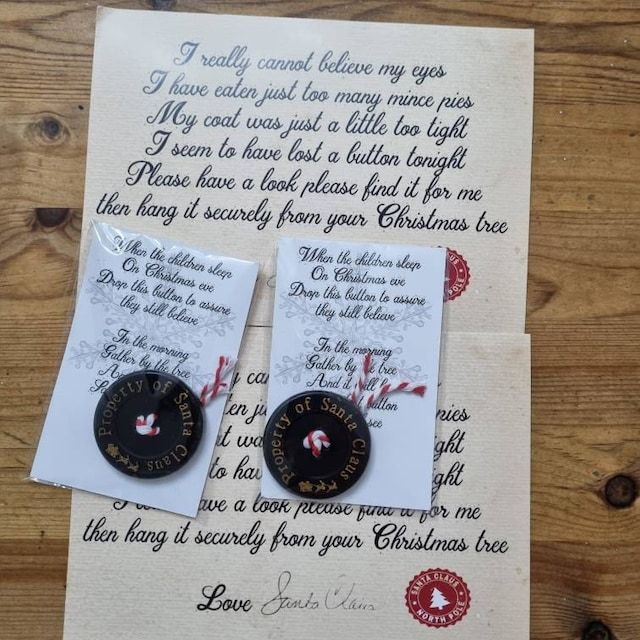 I really cannot believe my eyes
I have eaten just too many mince pies
My coat was just a little too tight
I seem to have lost a button tonight
Please have a look please find it for me
then hang it securely from your Christmas tree
POLE
When the children sleep
On Christmas eve
Drop this button to assure
they still believe
In the morning
Gather by the tree
Property of Santa Claus
When the children sleep
On Christmas eve
Drop this button to assure
they still believe
In the morning
Gather by the tree
And it
button
see
Property of Santa Claus
ght
ght
have a look please find it for me
then hang it securely from your Christmas tree
Love Santa Claus
SANTA CLAUS
NORTH POLE